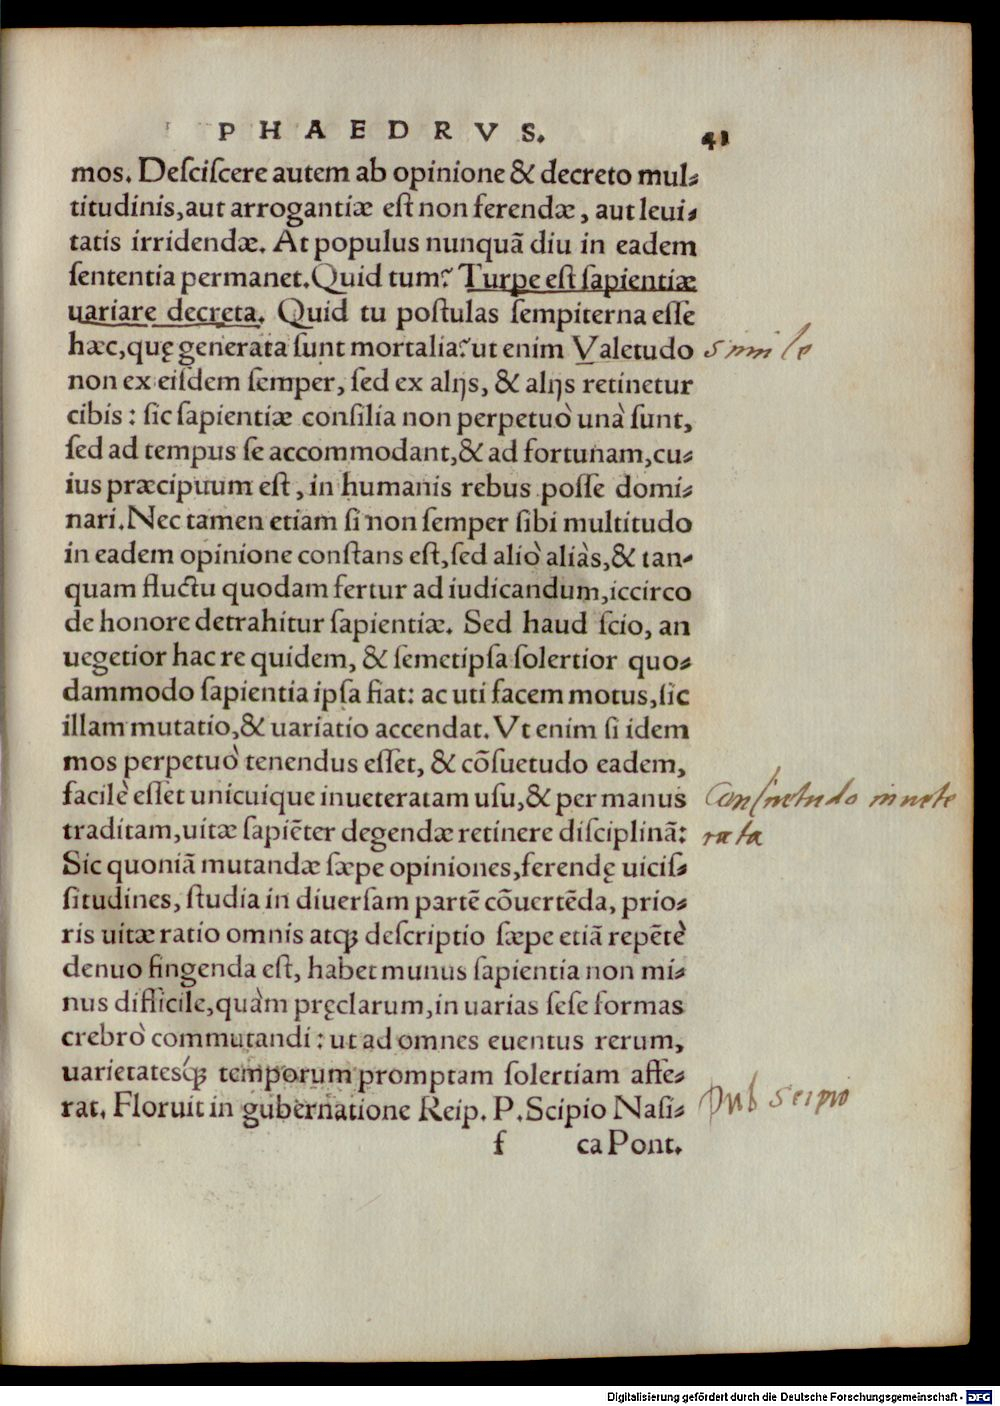 PHAEDRVS. 41
mos. Desciscere autem ab opinione & decreto mul-
titudinis, aut arrogantiæ est non ferendæ, aut leui-
tatis irridendæ. At populus nunquã diu in eadem
sententia permanet. Quid tum? Turpe est sapientiæ
uariare decreta. Quid tu postulas sempiterna esse
hæc, quę generata sunt mortalia? ut enim Valetudo
simile
non ex eisdem semper, sed ex alijs, & alijs retinetur
cibis: sic sapientiæ consilia non perpetuò unà sunt,
sed ad tempus se accommodant, & ad fortunam, cu-
ius præcipuum est, in humanis rebus posse domi-
nari. Nec tamen etiam si non semper sibi multitudo
in eadem opinione constans est, sed aliò aliàs, & tan-
quam fluctu quodam fertur ad iudicandum, iccirco
de honore detrahitur sapientiæ. Sed haud scio, an
uegetior hac re quidem, & semetipsa solertior quo-
dammodo sapientia ipsa fiat: ac uti facem motus, sic
illam mutatio, & uariatio accendat. Vt enim si idem
mos perpetuò tenendus esset, & cõsuetudo eadem,
facilè esset unicuique inueteratam usu, & per manus
Consuetudo inuete
traditam, uitæ sapiẽter degendæ retinere disciplinã:
rata
Sic quoniã mutandæ sæpe opiniones, ferendę uicis-
situdines, studia in diuersam partẽ cõuertẽda, prio-
ris uitæ ratio omnis atq; descriptio sæpe etiã repẽtè
denuo fingenda est, habet munus sapientia non mi-
nus difficile, quàm pręclarum, in uarias sese formas
crebrò commutandi: ut ad omnes euentus rerum,
uarietatesq́; temporum promptam solertiam affe-
rat. Floruit in gubernatione Reip. P. Scipio Nasi-
Pub Scipio
f ca Pont.
Digitalisierung gefördert durch die Deutsche Forschungsgemeinschaft - DFG